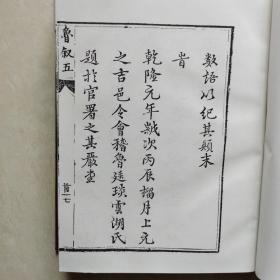 數語以紀其顛末
旹
乾隆元年歲次丙辰𦡱月上元
之吉邑令會稽魯廷琰雲湖氏
題於官署之其嚴堂
魯叙五